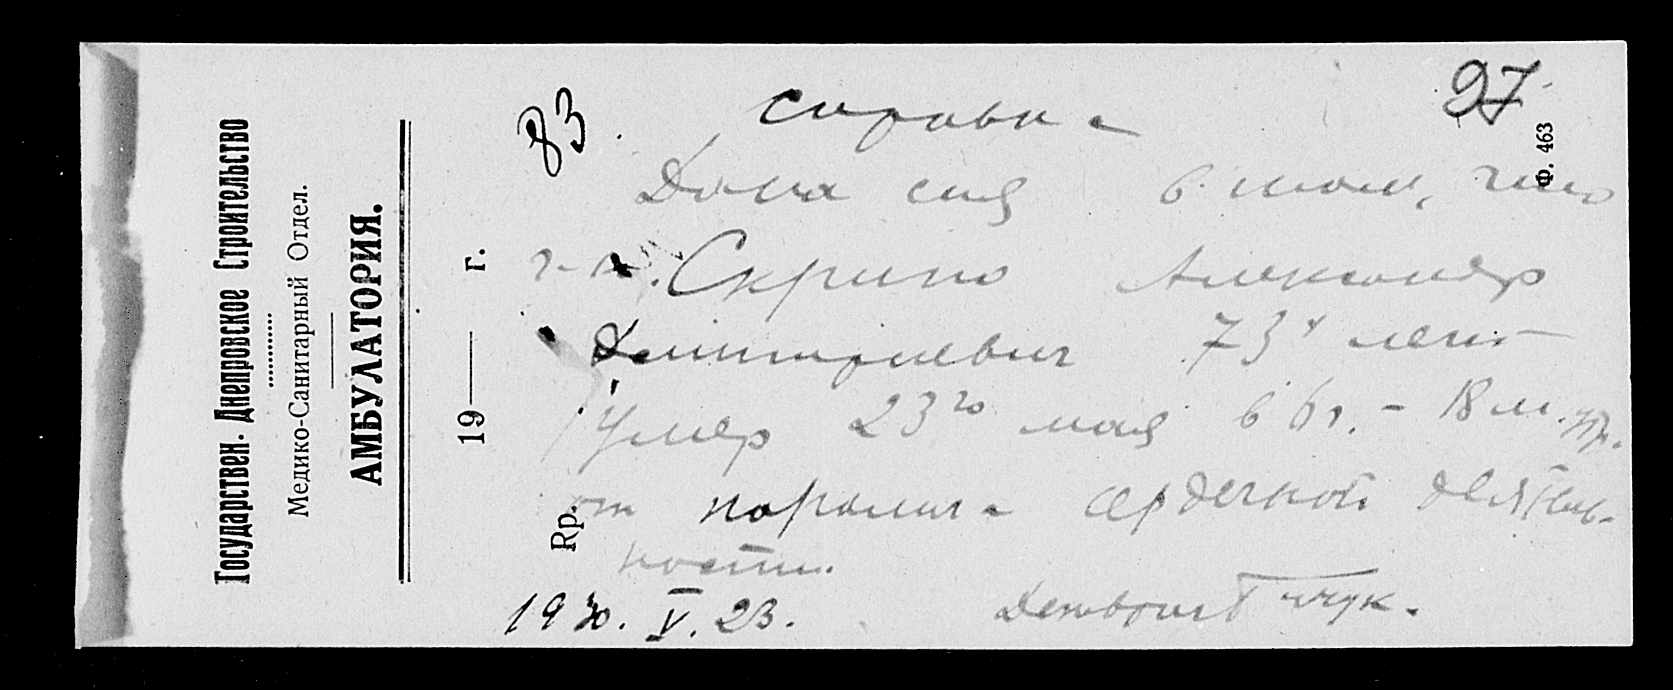 Государствен. Днепровское Строительство
Медико-Санитарный Отдел.
АМБУЛАТОРИЯ.
19 — г.
Rp.
Ф. 463
83
97
Справка
Дана сия в том, что
гр-н Скрипо Александр
Дмитриевич 73х лет
Умер 23го мая в 6 г. - 18 м. ут.
от паралича сердечной деятель-
ности.
1930. V. 23.